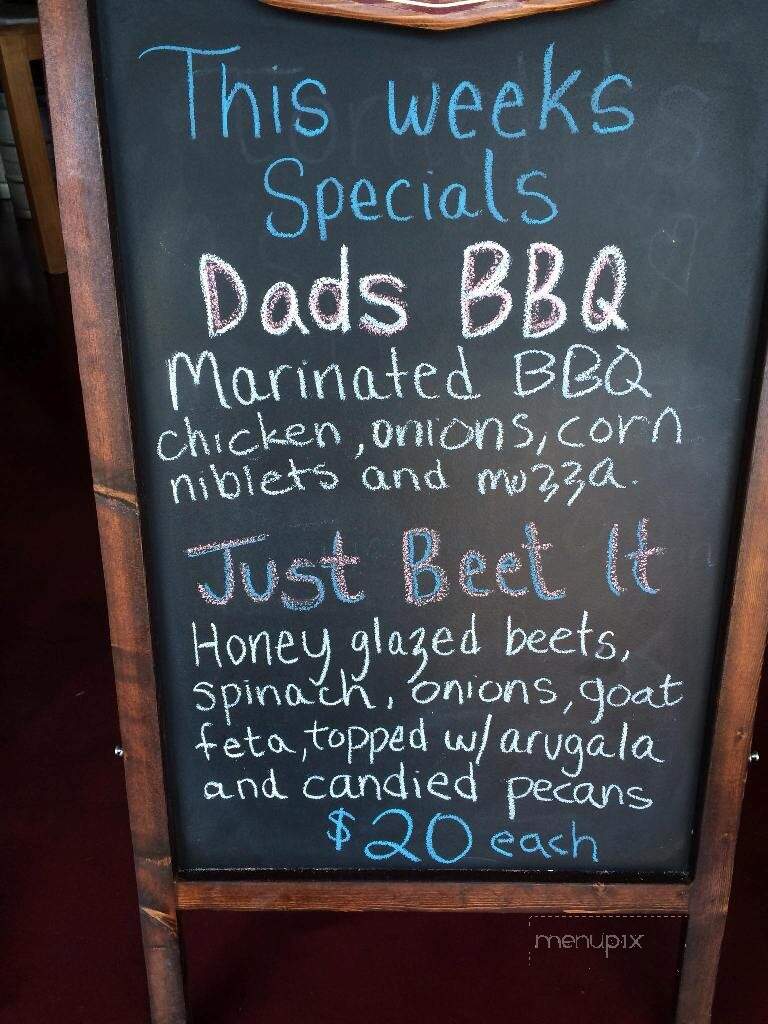 This weeks
Specials
Dads BBQ
Marinated BBQ
chicken, onions, corn
niblets and mozza.
Just Beet It
Honey glazed beets,
spinach, onions, goat
feta, topped w/ arugala
and candied pecans
$20 each
menupix